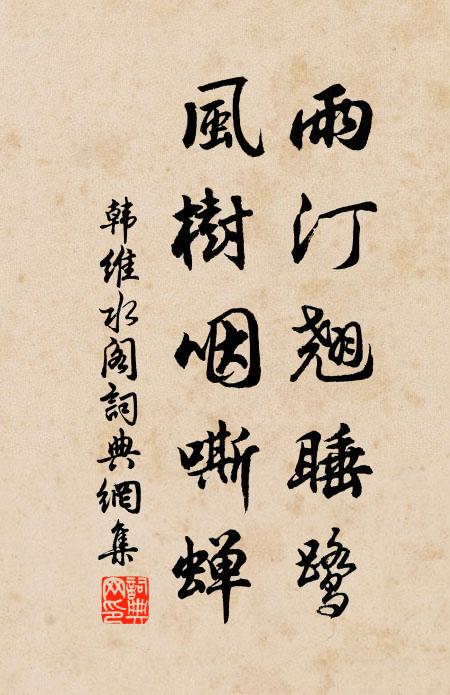 雨汀翘睡鹭
風樹咽嘶蝉
韩维水阁詞典網集
詞典网印